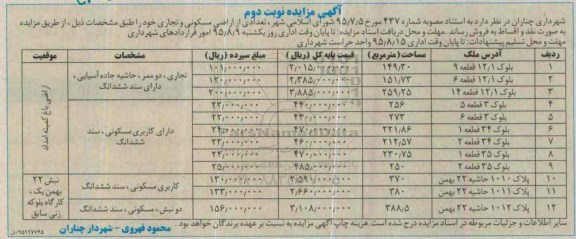 آگهی مزایده نوبت دوم
شهرداری چناران در نظر دارد به استناد مصوبه شماره ۴۳۷ مورخ ۹۵/۷/۵ شورای اسلامی شهر، تعدادی از اراضی مسکونی و تجاری خود را طبق مشخصات ذیل، از طریق مزایده
به صورت نقد و اقساط به فروش رساند. مهلت و محل دریافت اسناد مزایده: تا پایان وقت اداری روز یکشنبه ۹۵/۸/۹ امور قراردادهای شهرداری
مهلت و محل تسلیم پیشنهادات: تا پایان وقت اداری ۹۵/۸/۱۵ واحد حراست شهرداری
ردیف آدرس ملک مساحت (مترمربع) قیمت پایه کل (ریال) مبلغ سپرده (ریال) مشخصات موقعیت
۱ بلوک ۱۲/۱ قطعه ۹ ۱۴۹/۳۰ ۲/۰۱۵/۰۰۰ ۱۰۱/۰۰۰/۰۰۰
۲ بلوک ۱۲/۱ قطعه ۶ ۱۵۱/۷۳ ۲/۳۸۵/۰۰۰ ۱۲۰/۰۰۰/۰۰۰
۳ بلوک ۱۲/۱ قطعه ۱۴ ۲۵۹/۲۵ ۳/۸۸۵/۰۰۰ ۲۰۰/۰۰۰/۰۰۰
تجاری، دو ممر، حاشیه جاده آسیایی،
دارای سند ششدانگ
۴ بلوک ۳ قطعه ۵ ۲۵۶ ۴۴۰/۰۰۰/۰۰۰ ۲۲/۰۰۰/۰۰۰
۵ بلوک ۳ قطعه ۶ ۲۷۳ ۴۳۰/۰۰۰/۰۰۰ ۲۲/۰۰۰/۰۰۰
۶ بلوک ۳۴ قطعه ۱ ۲۲۱/۸۶
۷ بلوک ۳۴ قطعه ۲ ۲۱۲/۵۷ ۴۶۰/۰۰۰/۰۰۰ ۲۳/۰۰۰/۰۰۰
۸ بلوک ۳۵ قطعه ۱ ۲۳۰/۷۵ ۴۷۰/۰۰۰/۰۰۰ ۲۴/۰۰۰/۰۰۰
۹ بلوک ۳۵ قطعه ۲ ۲۵۰ ۴۸۵/۰۰۰ ۲۵/۰۰۰/۰۰۰
دارای کاربری مسکونی، سند
ششدانگ
اراضی باغ کمیته امداد
۱۰ پلاک ۱۰۱۰ حاشیه ۲۲ بهمن ۳۷۰ ۲/۵۹۰/۰۰۰ ۱۳۰/۰۰۰/۰۰۰
۱۱ پلاک ۱۰۱۱ حاشیه ۲۲ بهمن ۳۸۰ ۲/۶۶۰/۰۰۰ ۱۳۳/۰۰۰/۰۰۰
کاربری مسکونی، سند ششدانگ
۱۲ پلاک ۱۰۱۲ حاشیه ۲۲ بهمن ۳۸۸/۵ ۳/۱۰۸/۰۰۰ ۱۵۶/۰۰۰/۰۰۰ دو نبش، مسکونی، سند ششدانگ
نبش ۲۲
بهمن یک،
کارگاه بلوکه
زنی سابق
سایر اطلاعات و جزئیات مربوطه در اسناد مزایده درج شده است. هزینه چاپ آگهی مزایده به نسبت بر عهده برندگان خواهد بود.
محمود قهروی - شهردار چناران